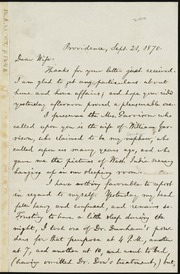 Providence, Sept. 25, 1870.
Dear Wife:
Thanks for your letter just received.
I am glad to get any particulars about
home and home affairs; and hope your ride
yesterday afternoon proved a pleasurable one.
I presume the Mrs. Garrison who
called upon you is the wife of William Gar-
rison, who claimed to be my nephew, who
called upon us many years ago, and who
gave me the picture of West India scenery
hanging up in our sleeping room.
I have nothing favorable to report
in regard to myself. Yesterday my head
felt heavy and confused, and remains so.
Trusting to have a little sleep during the
night, I took one of Dr. Dunham's pow-
ders for that purpose at 5 P.M., another
at 7, and another at 9 and went to bed
(having omitted Dr. Dow's treatment,) but,